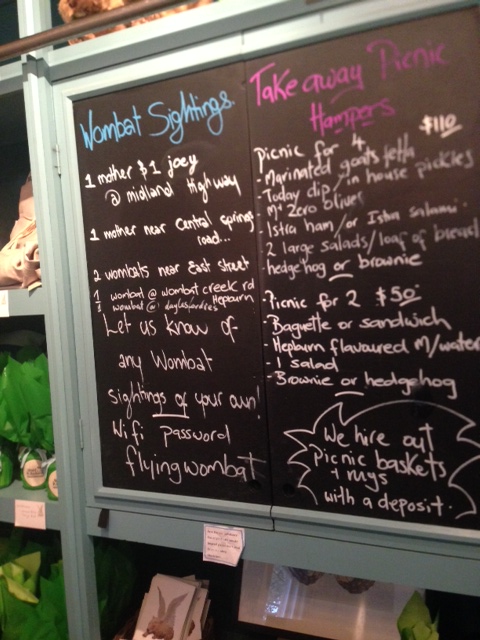 Wombat Sightings.
1 mother $ 1 joey
@ midland Highway
1 mother near Central springs
road...
2 wombats near East street
1 wombat @ wombat creek rd
1 wombat @ daylesford rd Hepburn
Let us know of
any Wombat
sightings of your own!
Wifi password
flyingwombat
Take away Picnic
Hampers
$110
Picnic for 4
- Marinated goats fetta
- Today dip / in house pickles
- Mt Zero olives
- Istra ham / or Istra salami
- 2 large salads / loaf of bread
hedgehog or brownie
- Picnic for 2 $50
- Baguette or sandwich
- Hepburn flavoured M/water
- 1 salad
- Brownie or hedgehog
We hire out
Picnic baskets
+ rugs
with a deposit.